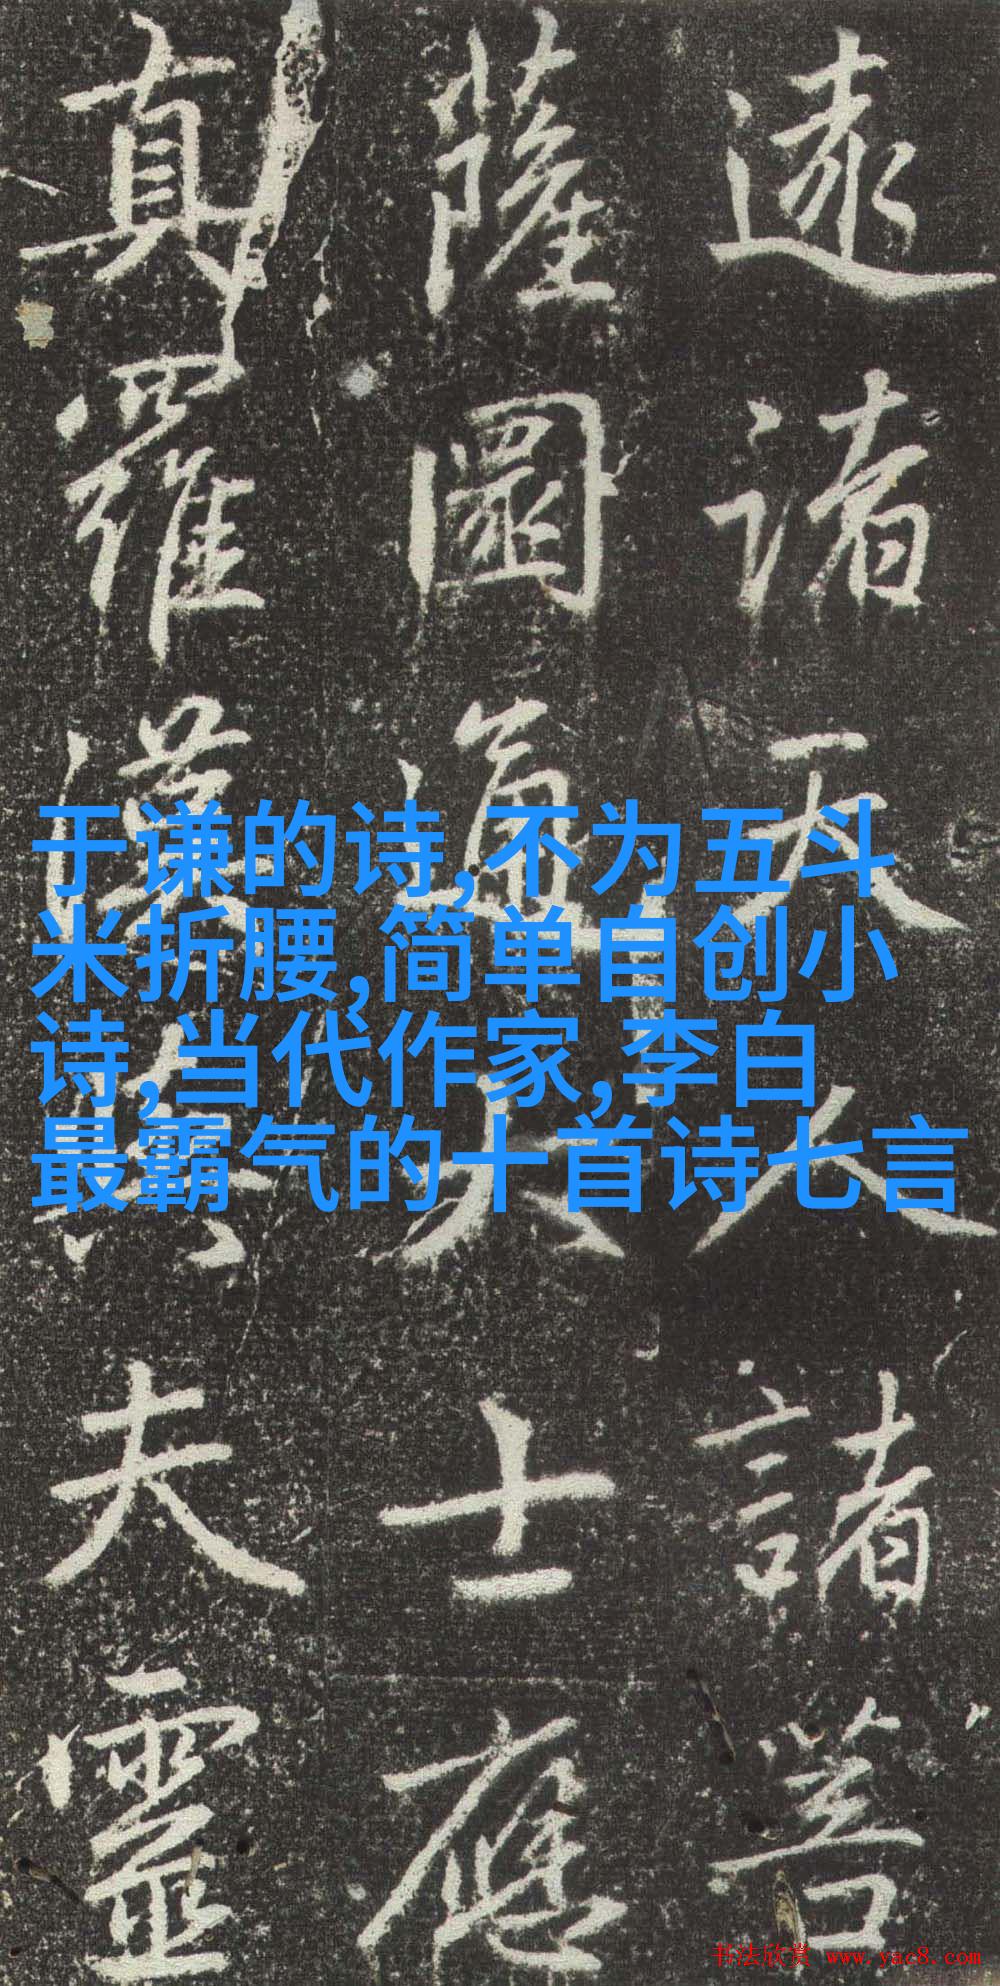 遠諸天人諸菩
薩圓通大士應
真羅漢與夫靈
于谦的诗,不为五斗
米折腰,简单自创小
诗,当代作家,李白
最霸气的十首诗七言
书法欣赏 www.yac8.com